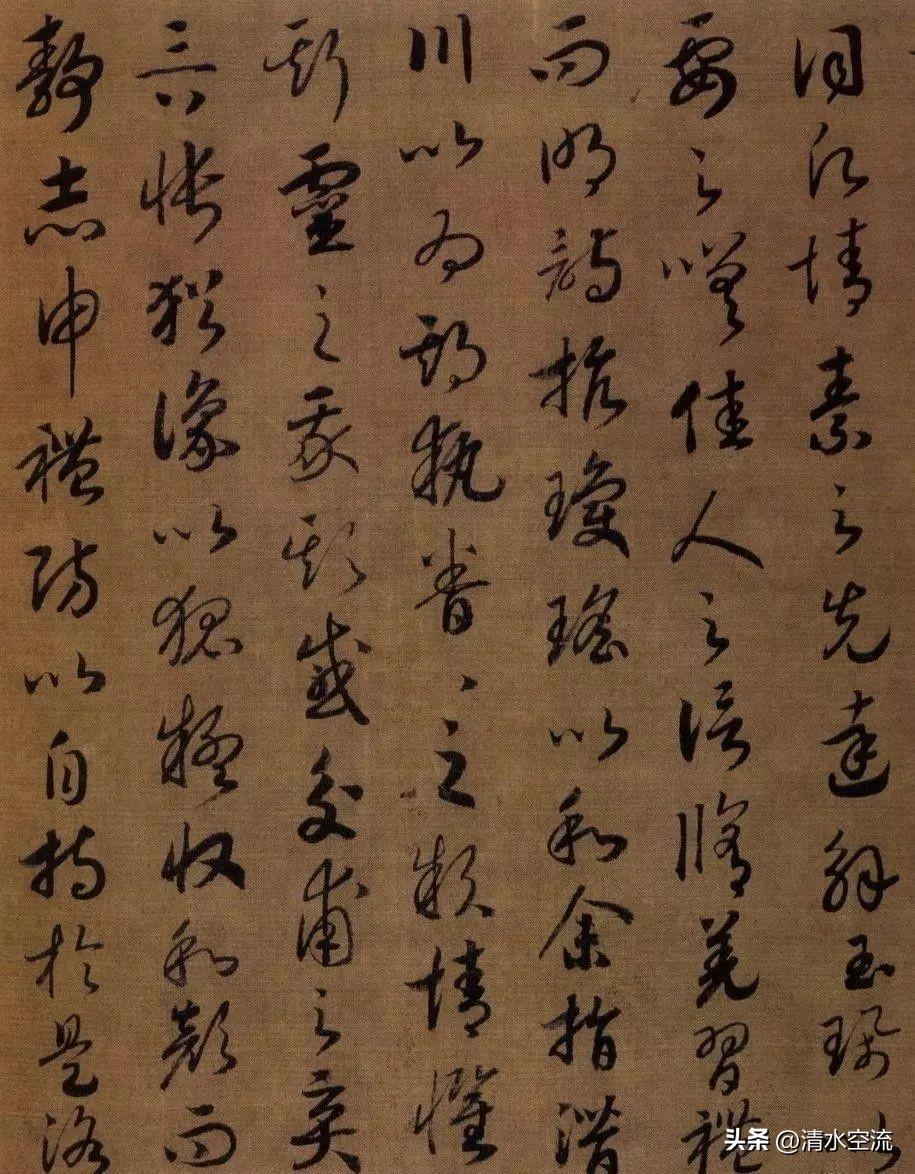 情素之先達解玉珮以
要之嗟佳人之信脩羌習禮
而明詩抗瓊瑤以和余指潛
川以為期執眷〻之款情懼
斯靈之我欺感交甫之棄
言悵猶豫以狐疑收和顏而
靜志申禮防以自持於是洛
头条 @清水空流